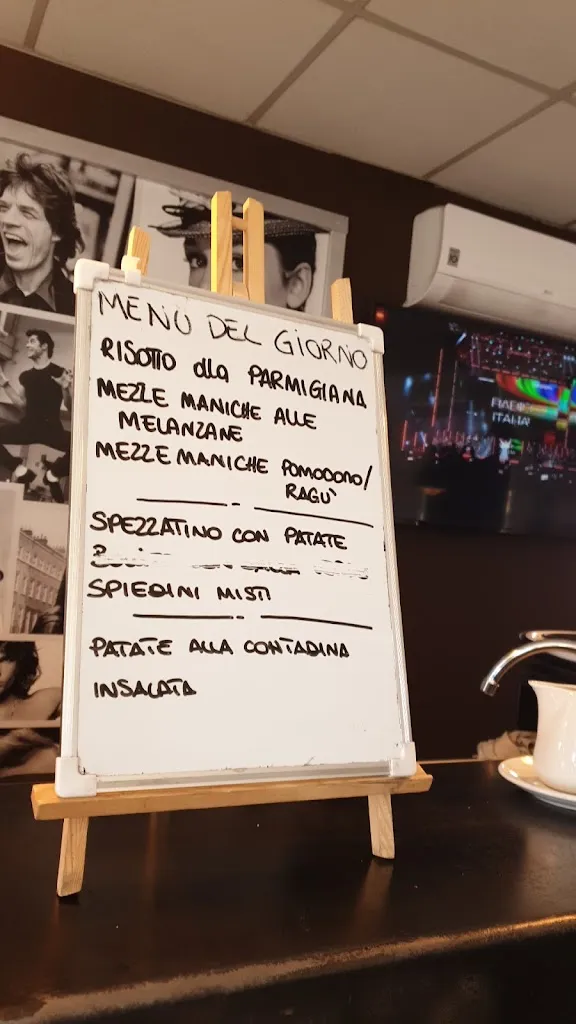 MENÙ DEL GIORNO
RISOTTO alla PARMIGIANA
MEZZE MANICHE ALLE
MELANZANE
MEZZE MANICHE POMODORO/
RAGÙ
SPEZZATINO CON PATATE
SPIEDINI MISTI
PATATE ALLA CONTADINA
INSALATA
ITALIA